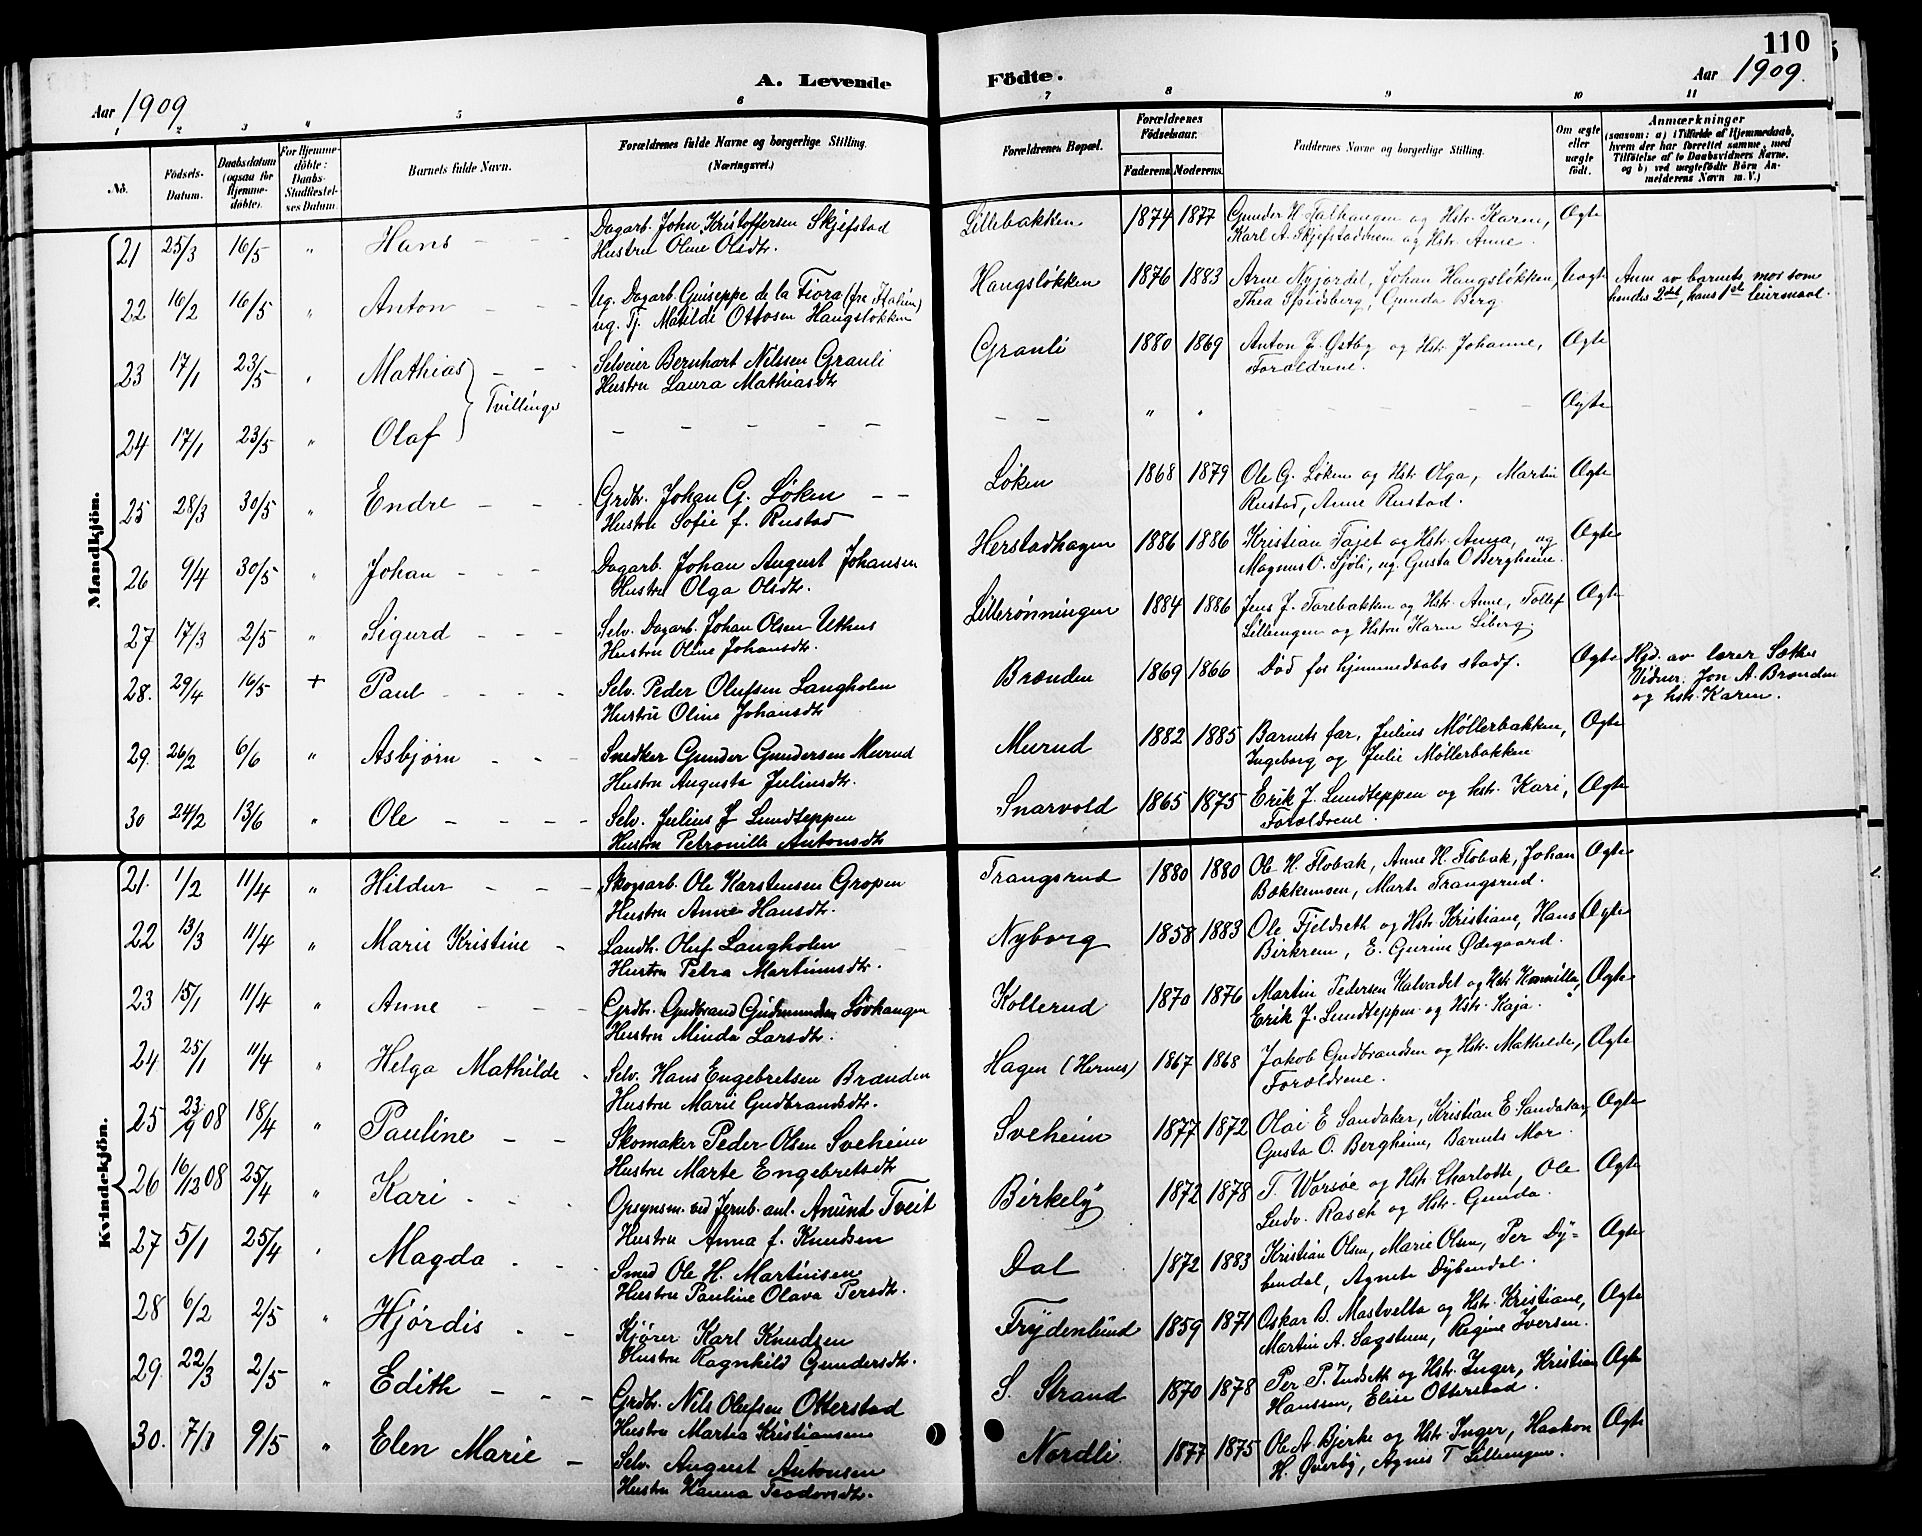 110
A. Levende Födte.
Aar 1909
Aar 1909.
1 2 3 4 5 6 7 8 9 10 11
No.
Födsels-Datum.
Daabsdatum (ogsaa for Hjemmedöbte).
For Hjemmedöbte: Daabs-Stadfæstelses Datum.
Barnets fulde Navn.
Forældrenes fulde Navne og borgerlige Stilling.
(Næringsvei.)
Forældrenes Bopæl.
Forældrenes Födselsaar.
Faderens Moderens.
Faddernes Navne og borgerlige Stilling.
Om ægte eller uægte födt.
Anmærkninger
(saasom: a) i Tilfælde af Hjemmedaab, hvem der har forrettet samme, med Tilföielse af to Daabsvidners Navne, og b) ved uægtefödte Börn Anmelderens Navn m. V.)
Mandkjön.
21 25/3 16/5 " Hans - - - Dagarb. Johan Kristoffersen Skjefstad Lillebakken 1874 1877 Gunder H. Talhaugen og Hstr. Karen, Ægte
Hustru Oline Olsdtr. Karl A. Skjefstad og Hstr. Anne.
22 16/2 16/5 " Anton - - Ug. Dagarb. Guiseppe de la Fiora (fra Italien) Haugsløkken 1876 1883 Arne Nyjordet, Johan Haugsløkken, Uægte Anm. av barnets mor som
ug. Tj. Matilde Ottosen Haugsløkken Thea Spidsberg, Gunda Berg. hendes 2det, hans 1ste leiermaal.
23 17/1 23/5 " Mathias - - Selveier Bernhart Nilssen Granli Granli 1880 1869 Anton J. Østby og Hstr. Johanne, Ægte
Hustru Laura Mathiasdtr Forældrene.
Tvillinger
24 17/1 23/5 " Olaf - - - - - - - " " - - - - Ægte
25 28/3 30/5 " Endre - - - Grdbr. Johan G. Løken - - Løken 1868 1879 Ole G. Løken og Hstr Olga, Martin Ægte
Hustru Sofie f. Rustad Rustad, Anne Rustad.
26 9/4 30/5 " Johan - - - Dagarb. Johan August Johansen Herstadhagen 1886 1886 Kristian Fajet og Hstr. Anna, ug Ægte
Hustru Olga Olsdtr. Magnus O. Fjöli, ug. Gusta O Bergheim.
27 17/3 2/5 " Sigurd - - - Selv. Dagarb. Johan Olsen Uthus Lillerønningen 1884 1886 Jens J. Torebakken og Hstr. Anne, Tollef Ægte
Hustru Oline Johansdtr. Lillengen og Hstru Karen Liberg.
28. 29/4 16/5 + Paul - - - - Selv. Peder Olufsen Langholen Brænden 1869 1866 Död for hjemmedaabs stadf. Ægte Hjd. av lærer Sæther
Hustru Oline Johansdtr Vidner. Jon A. Brænden
og hstr. Karen.
29. 26/2 6/6 " Asbjørn - - - Snedker Gunder Gundersen Murud Murud 1882 1885 Barnets far, Julius Møllerbakken, Ægte
Hustru Augusta Juliusdtr. Ingeborg og Julie Møllerbakken
30 24/2 13/6 " Ole - - - - Selv. Julius J Lundteppen Snarvold 1865 1875 Erik J. Lundteppen og hstr. Kari, Ægte
Hustru Petronille Antonsdtr Forældrene.
Kvindekjön.
21. 1/2 11/4 " Hildur - - - Skogsarb. Ole Karstensen Gropen Trangsrud 1880 1880 Ole H. Flobak, Anne H. Flobak, Johan Ægte
Hustru Anne Hansdtr. Bækkemoen, Marte Trangsrud.
22 13/3 11/4 " Marie Kristine - Landh. Oluf Langholen Nyborg 1858 1883 Ole Fjeldseth og Hstr Kristiane, Hans Ægte
Hustru Petra Martinusdtr. Birkrem, E. Gurine Ødegaard.
23 15/1 11/4 " Anne - - - Grdbr. Gudbrand Gudmundsen Lövhaugen Kollerud 1870 1876 Martin Pedersen Kalvadet og Hstr Kamilla, Ægte
Hustru Minda Larsdtr. Erik J. Lundteppen og Hstr. Kaja.
24 25/1 11/4 " Helga Mathilde - Selv. Hans Engebretsen Brænden Hagen (Hernes) 1867 1868 Jakob Gudbrandsen og Hstr. Mathilde, Ægte
Hustru Marie Gudbrandsdtr. Forældrene.
25 23/9 08 18/4 " Pauline - - Skomaker Peder Olsen Sveheim Sveheim 1877 1872 Olai E Sandaker, Kristian E. Sandaker, Ægte
Hustru Marte Engebretsdtr Gusta O. Bergheim, Barnets Mor.
26 16/12 08 25/4 " Kari - - Opsynsm. ved Jernb. anl. Anund Tveit Birkely 1872 1878 T. Worsöe og Hstr Charlotte, Ole Ægte
Hustru Anna f. Knudsen Ludv. Rasch og Hstr. Gunda.
27 5/1 25/4 " Magda - - - Smed Ole H. Martinsen Dal 1872 1883 Kristian Olsen, Marie Olsen, Per Dy= Ægte
Hustru Pauline Olava Persdtr. bendal, Agnete Dybendal.
28 6/2 2/5 " Hjørdis - - Kjører Karl Knudsen Frydenlund 1859 1871 Oskar B. Mastvelta og Hstr. Kristiane, Ægte
Hustru Ragnhild Gundersdtr. Martin A. Sagstuen, Regine Iversen.
29. 22/3 2/5 " Edith - - - Grdbr. Nils Olufsen Otterstad S. Strand 1870 1878 Per P. Indseth og Hstr. Inger, Kristian Ægte
Hustru Martea Kristiansen Hanssen, Elise Otterstad.
30. 7/3 9/5 " Elen Marie - Selv. August Antonsen Nordli 1877 1875 Ole A. Bjerke og Hstr. Inger, Haakon Ægte
Hustru Hanna Teodorsdtr. H. Øverby, Agnes T Lillengen.